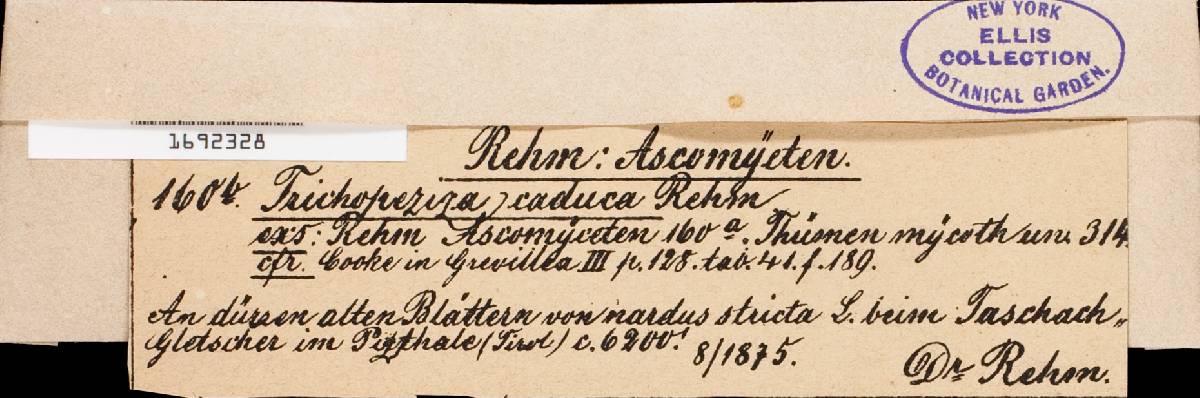 NEW YORK
ELLIS
COLLECTION
BOTANICAL GARDEN.
1692328
Rehm: Ascomÿceten.
160b. Trichopeziza caduca Rehm
exs: Rehm Ascomÿceten 160a. Thümen mÿcoth. un. 314
cfr. Cooke in Grevillea III p. 128. tab. 41. f. 189.
An dürren alten Blättern von nardus stricta L. beim Taschach-
Gletscher im Pitzthale (Tirol) c. 6200'
8/1875.
Dr Rehm.